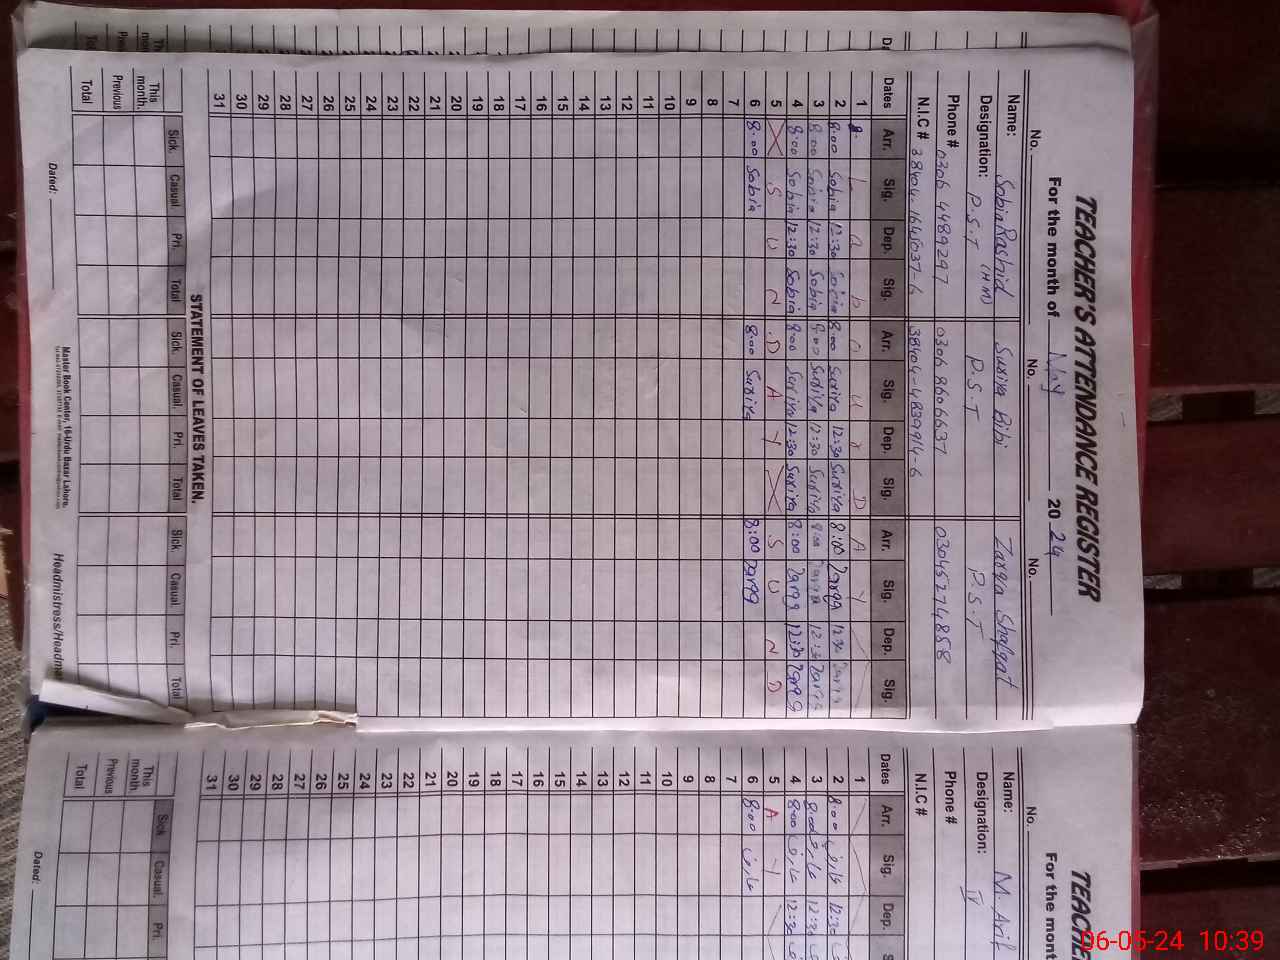 TEACHER'S ATTENDANCE REGISTER
For the month of May 2024
No. No. No.
Name: Sobia Rashid Suriya Bibi Zarqa Shafqat
Designation: P.S.T (HM) P.S.T P.S.T
Phone # 0306 4489297 0306 8606637 03045274858
N.I.C # 38404-4839914-6
Dates Arr. Sig. Dep. Sig. Arr. Sig. Dep. Sig. Arr. Sig. Dep. Sig.
1 L a b o u r D A Y
2 8:00 Sobia 12:30 Sobia 8:00 Suriya 12:30 Suriya 8:00 Zarqa 12:30 Zarqa
3 8:00 Sobia 12:30 Sobia 8:00 Suriya 12:30 Suriya 8:00 Zarqa 12:30 Zarqa
4 8:00 Sobia 12:30 Sobia 8:00 Suriya 12:30 Suriya 8:00 Zarqa 12:30 Zarqa
5 S U N D A Y S U N D
6 8:00 Sobia 8:00 Suriya 8:00 Zarqa
7
8
9
10
11
12
13
14
15
16
17
18
19
20
21
22
23
24
25
26
27
28
29
30
31
STATEMENT OF LEAVES TAKEN.
Sick. Casual. Pri. Total Sick. Casual. Pri. Total Sick. Casual. Pri. Total
This month.
Previous
Total
Dated:
Master Book Center, 16-Urdu Bazar Lahore.
Headmistress/Headma
TEACHE
For the mont
No.
Name: M. Arif
Designation: IV
Phone #
N.I.C #
Dates Arr. Sig. Dep. S
1
2 8:00 عارف 12:30
3 8:00 عارف 12:30
4 8:00 عارف 12:30
5 A Y
6 8:00 عارف
7
8
9
10
11
12
13
14
15
16
17
18
19
20
21
22
23
24
25
26
27
28
29
30
31
Sick Casual. Pri.
This month.
Previous
Total
Dated:
06-05-24 10:39